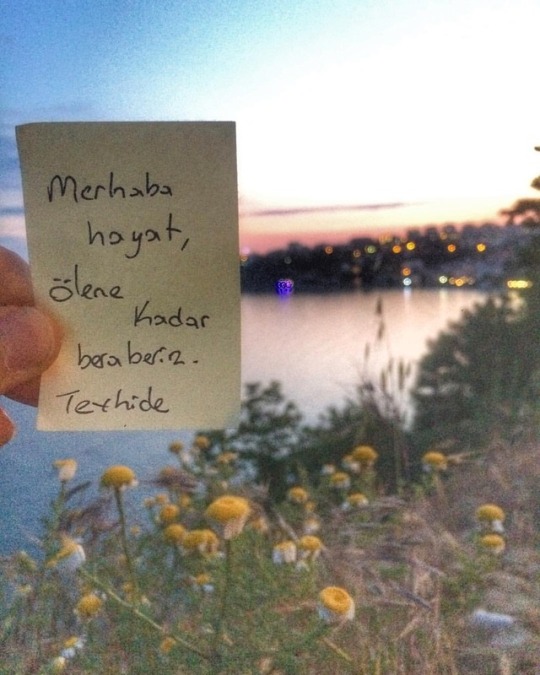 Merhaba
hayat,
ölene
kadar
beraberiz.
Tevhide